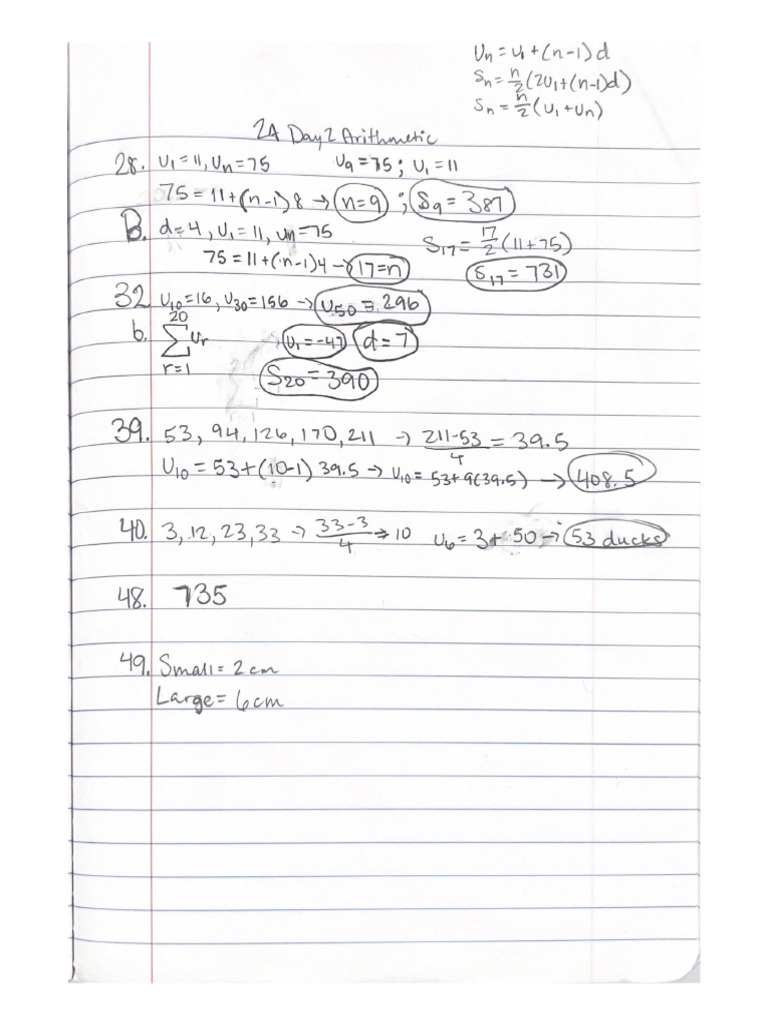 Un = U1 + (n-1)d
Sn = n/2 (2U1 + (n-1)d)
Sn = n/2 (U1 + Un)
2A Day 2 Arithmetic
28. U1 = 11, Un = 75 U9 = 75; U1 = 11
75 = 11 + (n-1)8 → n=9; S9 = 387
B. d=4, U1=11, Un=75 S17 = 17/2 (11+75)
75 = 11 + (n-1)4 → 17=n S17 = 731
32 U10=16, U30=156 → U50 = 296
b. 20 Σ r=1 Ur → U1=-47 d=7
S20 = 390
39. 53, 94, 126, 170, 211 → 211-53/4 = 39.5
U10 = 53+(10-1) 39.5 → U10 = 53+9(39.5) → 408.5
40. 3, 12, 23, 33 → 33-3/4 → 10 U6 = 3+ 50 → 53 ducks
48. 735
49. Small = 2cm
Large = 6cm